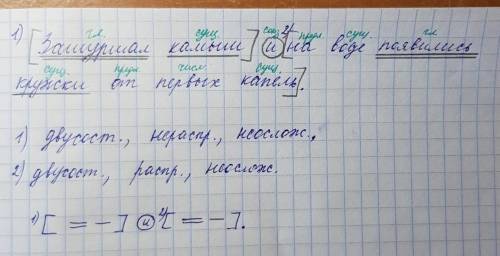 гл. сущ. союз предл. сущ. гл.
1) [Зашуршал камыш] и ²⁾[на воде появились
сущ. предл. числ. сущ.
кружки от первых капель].
1) двусост., нераспр., неослож.,
2) двусост., распр., неослож.
¹⁾[ = – ] и ²⁾[ = – ].